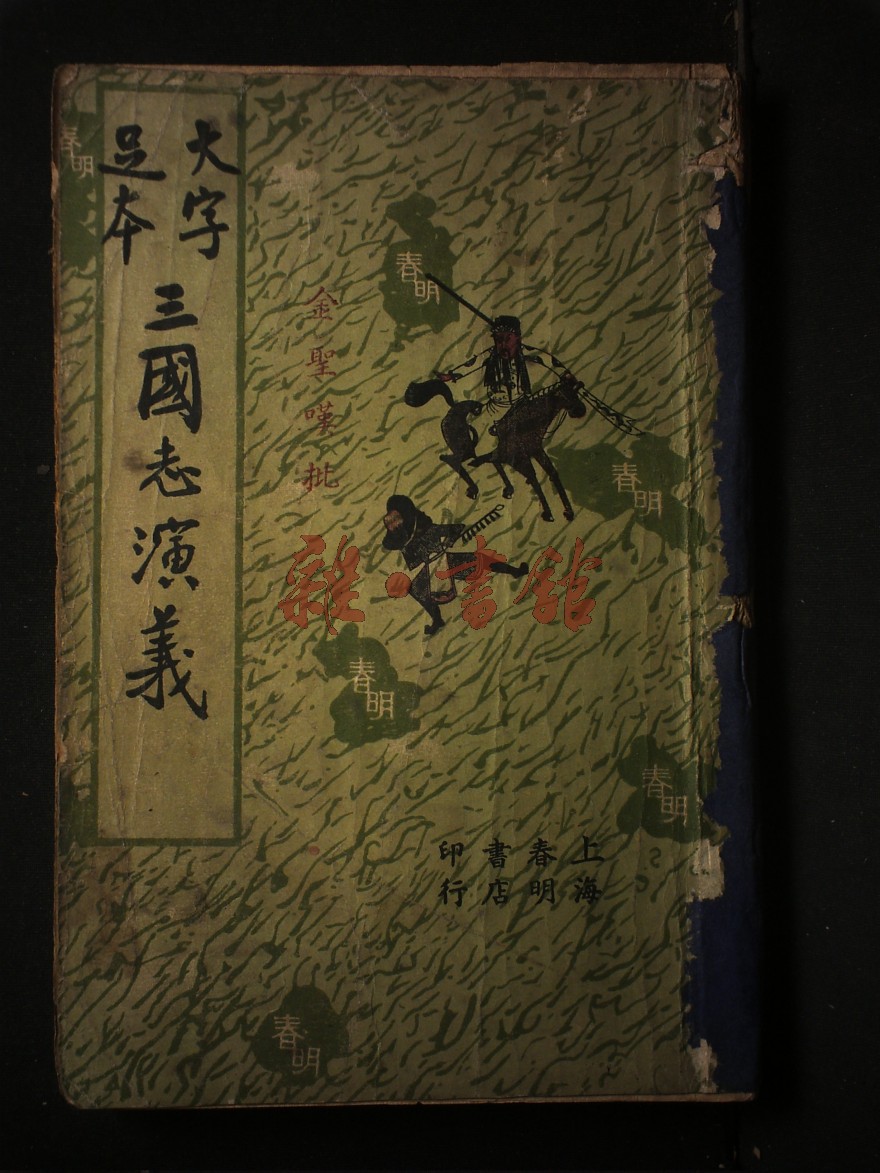 大字
足本
三國志演義
金聖嘆批
春明
春明
春明
春明
春明
春明
雜·書館
上海
春明
書店
印行